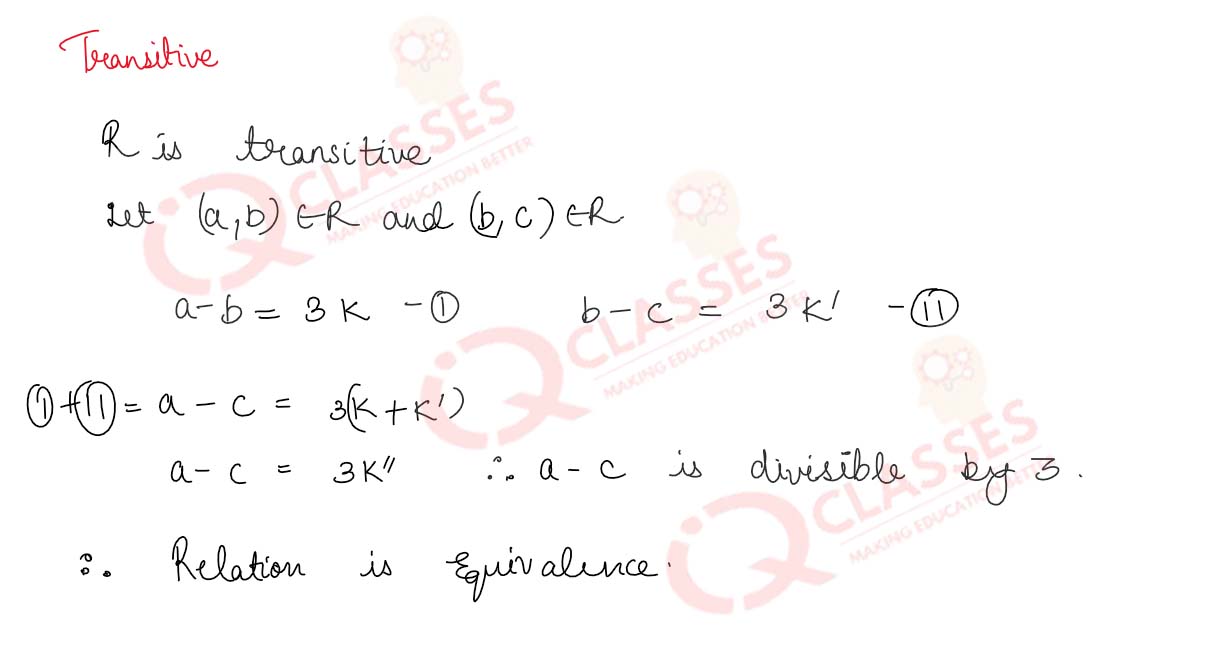 Transitive
R is transitive
Let (a,b) ∈ R and (b,c) ∈ R
a-b = 3K -① b-c = 3K' -⑪
①+⑪ = a-c = 3(K+K')
a-c = 3K'' ∴ a-c is divisible by 3.
∴ Relation is Equivalence.
IQ CLASSES
MAKING EDUCATION BETTER
IQ CLASSES
MAKING EDUCATION BETTER
IQ CLASSES
MAKING EDUCATION BETTER